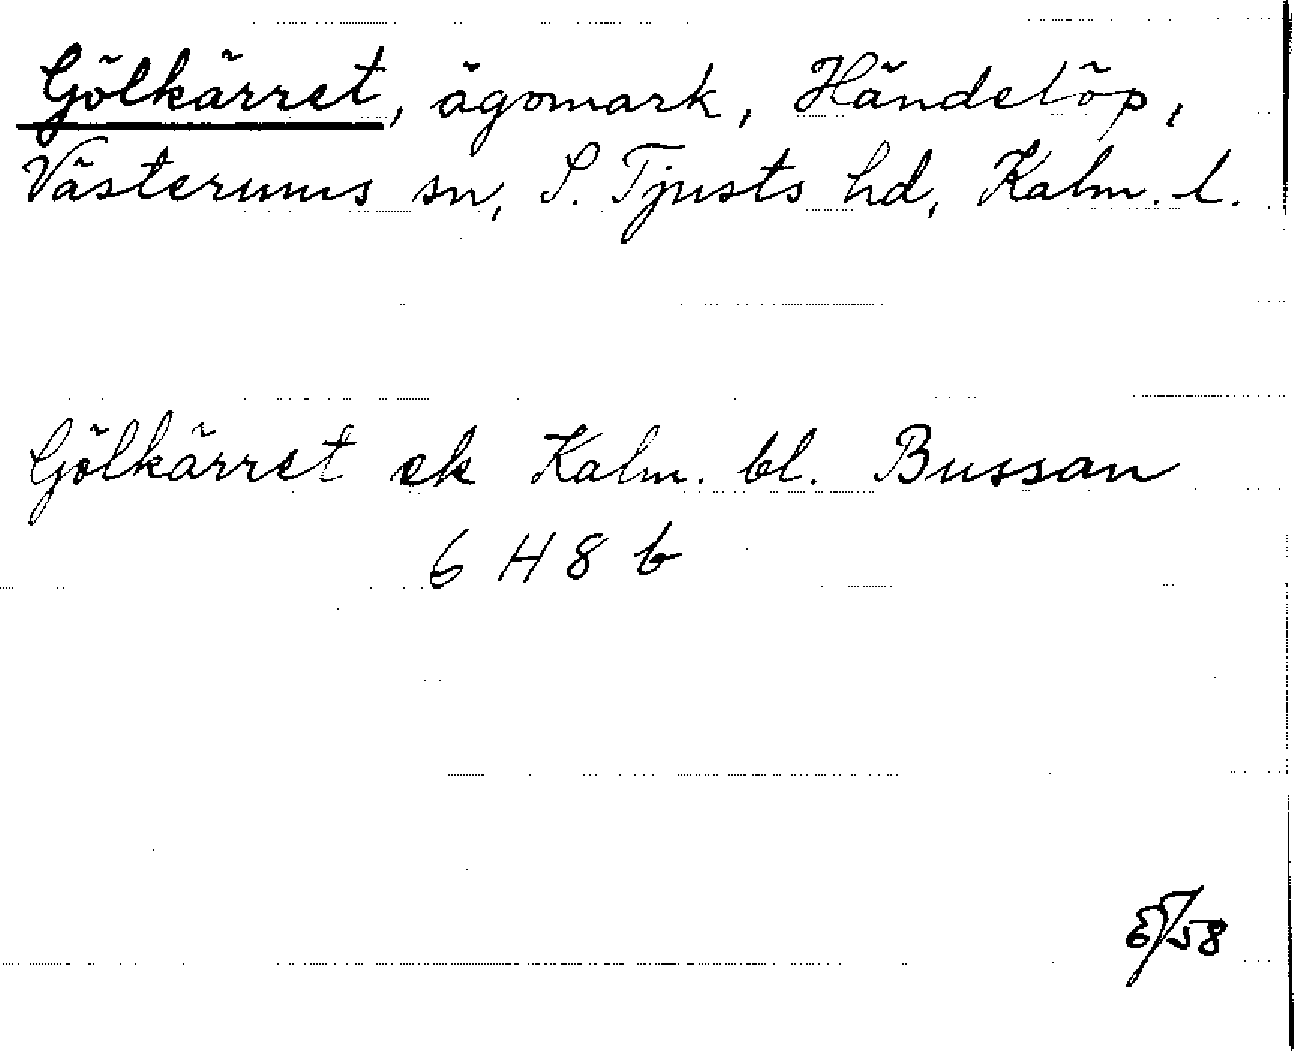 Gölkärret, ägomark, Händelöp,
Västerums sn, S. Tjusts hd, Kalm. l.
Gölkärret ek Kalm. bl. Bussan
6 H 8 b
58